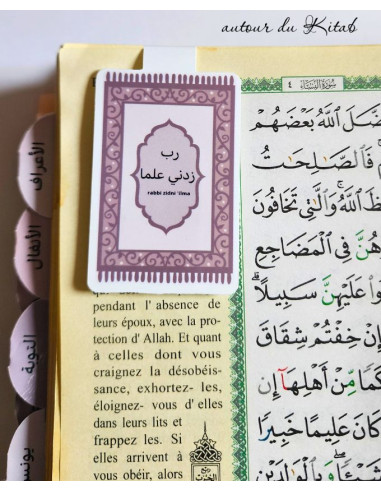 autour du Kitab
سورة النساء ٤
رب
زدني علما
rabbi zidni 'ilma
الأعراف
الأنفال
التوبة
يونس
pendant l'absence de
leurs époux, avec la pro-
tection d'Allah. Et quant
à celles dont vous
craignez la désobéis-
sance, exhortez- les,
éloignez- vous d'elles
dans leurs lits et
frappez les. Si
elles arrivent à
vous obéir, alors
ضَّلَ ٱللَّهُ بَعْضَهُمْ
فَٱلصَّـٰلِحَـٰتُ
ظَ ٱللَّهُ وَٱلَّـٰتِى تَخَافُونَ
هُنَّ فِى ٱلْمَضَاجِعِ
وا۟ عَلَيْهِنَّ سَبِيلًا
إِنْ خِفْتُمْ شِقَاقَ
كَمًا مِّنْ أَهْلِهَآ إِن
كَانَ عَلِيمًا خَبِيرًا
شَيْـًٔا وَبِٱلْوَٰلِدَيْنِ